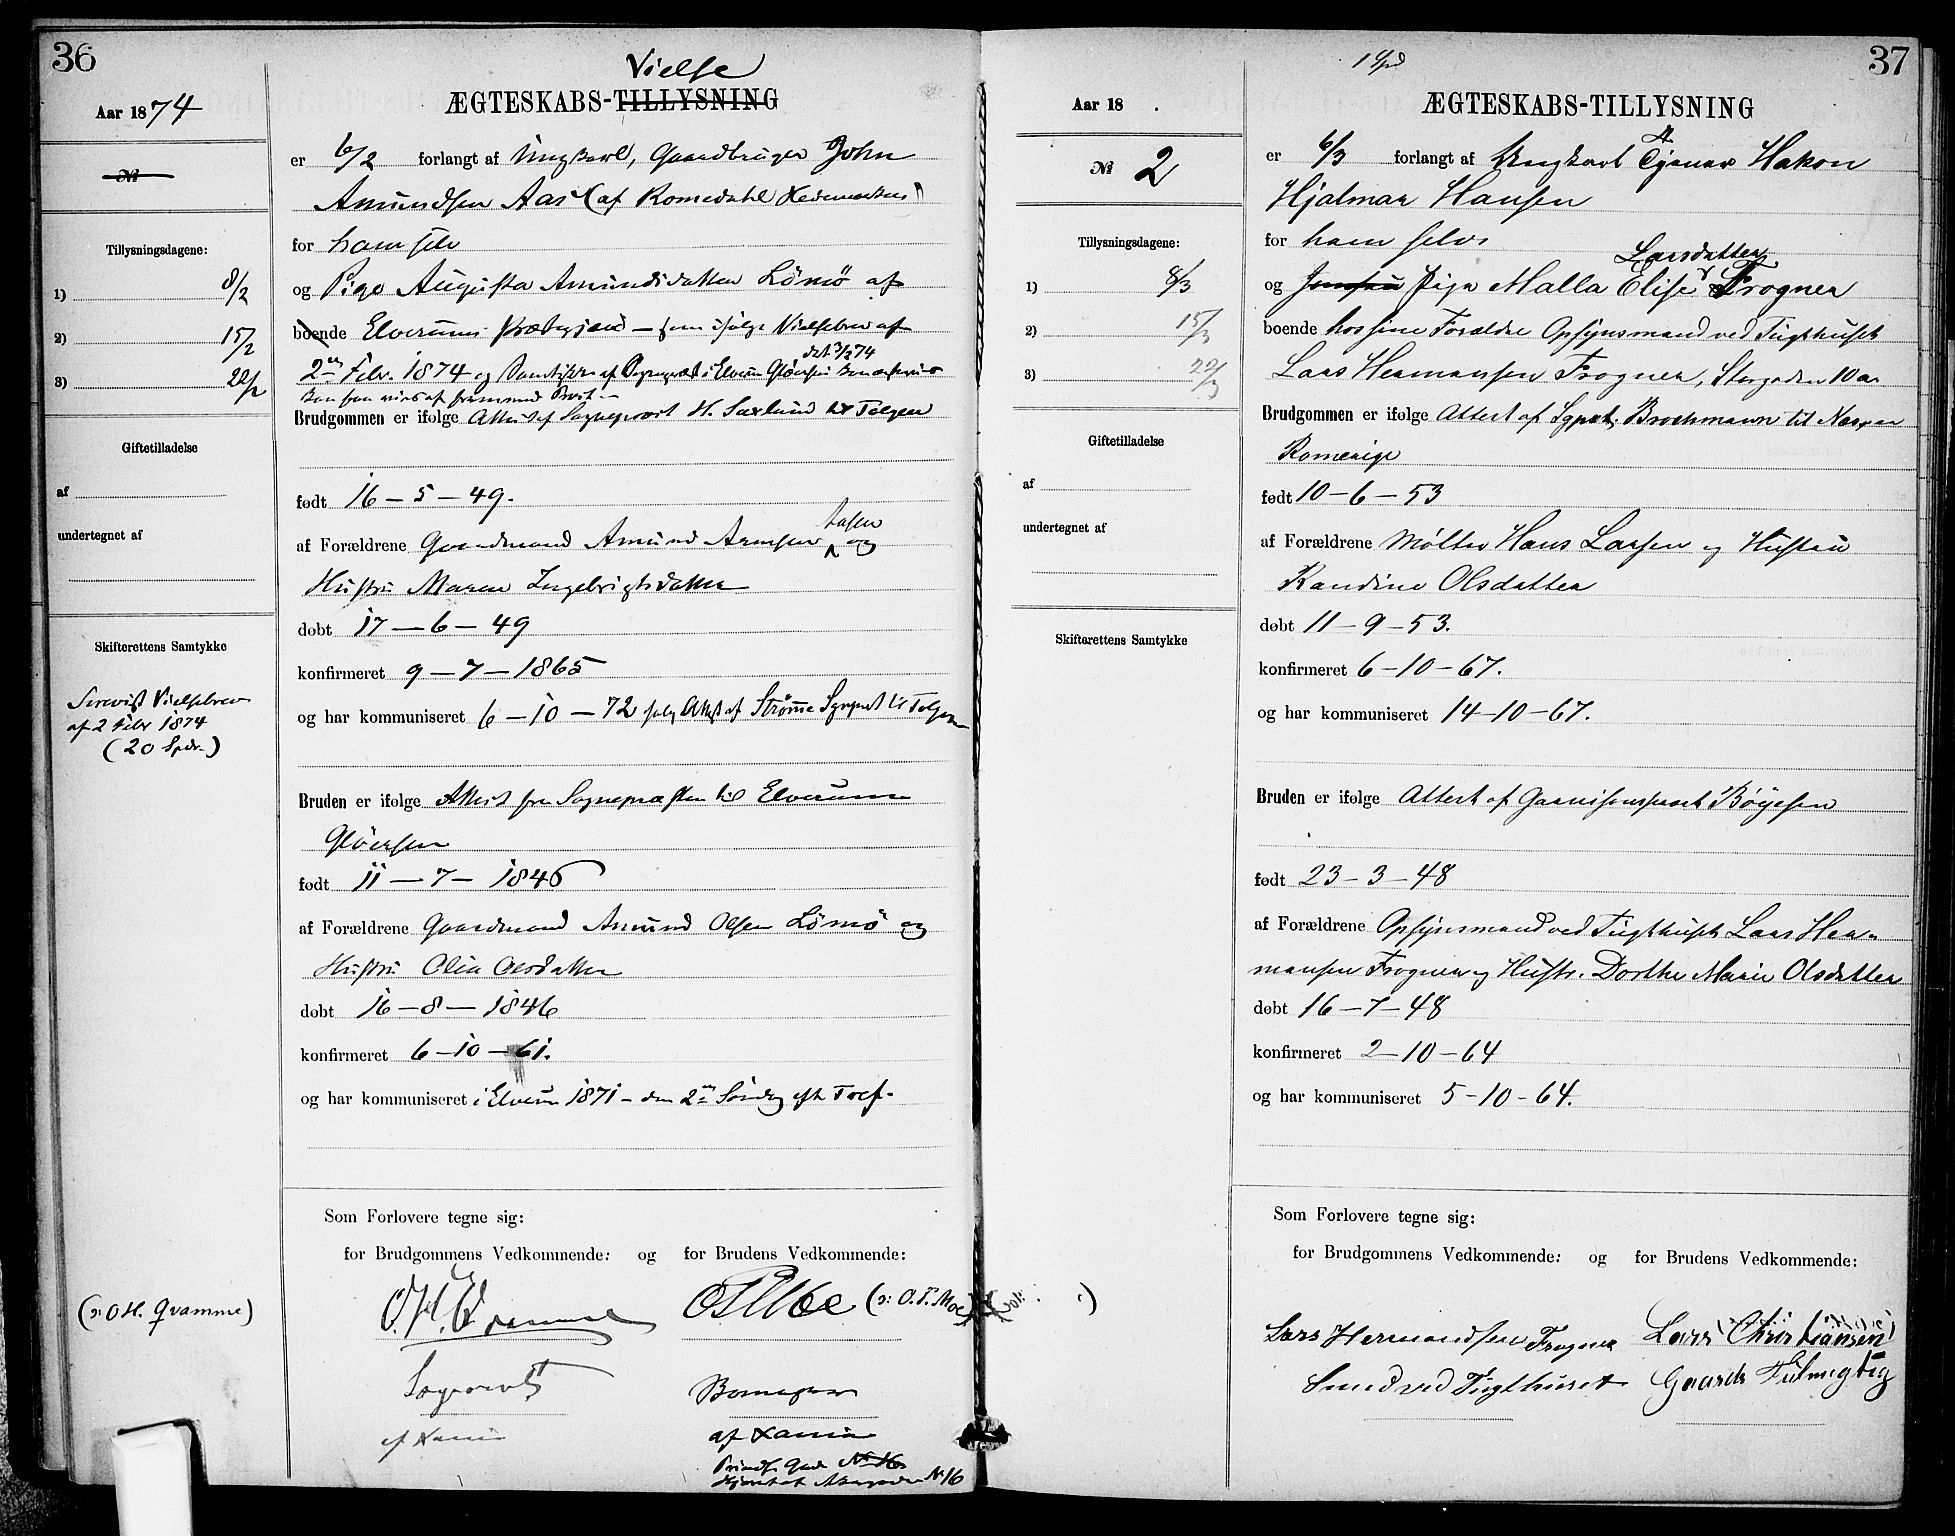 36
Aar 1874
Vielse
ÆGTESKABS-TILLYSNING
№
er 6/2 forlangt af Ungkarl, Gaardbruger John
Amundsen Aas (af Romedahl Hedemarken)
for ham selv
Tillysningsdagene:
1) 8/2
2) 15/2
3) 22/2
og Pige Augusta Amundsdatter Lömö af
boende Elverums Prætegjeld – som ifølge Vielsebrev af
det 3/2 74
2den Febr. 1874 og Samtykke af Sognepræst i Elverum Glöersen
kan faa vies af fremmed Præst –
Brudgommen er ifølge Attest af Sogneprest H. Saxlund til Tolgen
Giftetilladelse
af
undertegnet af
født 16 – 5 – 49.
Aasen
af Forældrene Gaardmand Amund Arnesen og
Hustru Maren Ingebrigtsdatter
døbt 17 – 6 – 49
konfirmeret 9 – 7 – 1865
og har kommuniseret 6 – 10 – 72 følg Attest af Strömme Sgnprst til Tolgen
Skifterettens Samtykke
Forevist Vielsebrev
af 2 Febr 1874
(20 Spdr.)
Bruden er ifølge Attest fra Sognepræsten til Elverum
Glöersen
født 11 – 7 – 1846
af Forældrene Gaardmand Amund Olsen Lömö og
Hustru Olia Olsdatter
døbt 16 – 8 – 1846
konfirmeret 6 – 10 – 61.
og har kommuniseret i Elverum 1871 – den 2den Søndag eft Tref.
Som Forlovere tegne sig:
for Brudgommens Vedkommende: og for Brudens Vedkommende:
(ɔ: O H. Qvamme)
O. H. Qvamme
O T Moe (ɔ: O. T. Moe)
af Xania
af Xania
№ 16
№ 16
37
1 Spd
Aar 18 .
ÆGTESKABS-TILLYSNING
№ 2
er 6/3 forlangt af Ungkarl Tjener Hakon
Hjalmar Hansen
for ham selv
Larsdatter
og Jomfru Pige Malla Elise Frogner
Tillysningsdagene:
1) 8/3
2) 15/3
3) 22/3
boende hos sine Forældre Opsynsmand ved Tugthuset
Lars Hermansen Frogner, Storgaden 10 a.
Brudgommen er ifølge Attest af Sgpræst. Brochmann til Næs paa
Romerige
Giftetilladelse
af
undertegnet af
født 10 – 6 – 53
af Forældrene Møller Hans Larsen og Hustru
Randine Olsdatter
døbt 11 – 9 – 53.
konfirmeret 6 – 10 – 67.
og har kommuniseret 14 – 10 – 67.
Skifterettens Samtykke
Bruden er ifølge Attest af Garnisonsprest Böyesen
født 23 – 3 – 48
af Forældrene Opsynsmand ved Tugthuset Lars Her-
mansen Frogner og Hustr. Dorthe Marie Olsdatter
døbt 16 – 7 – 48
konfirmeret 2 – 10 – 64
og har kommuniseret 5 – 10 – 64.
Som Forlovere tegne sig:
for Brudgommens Vedkommende: og for Brudens Vedkommende:
Lars Hermandsen Frogner
Lars Christiansen
Smed ved Tugthuset